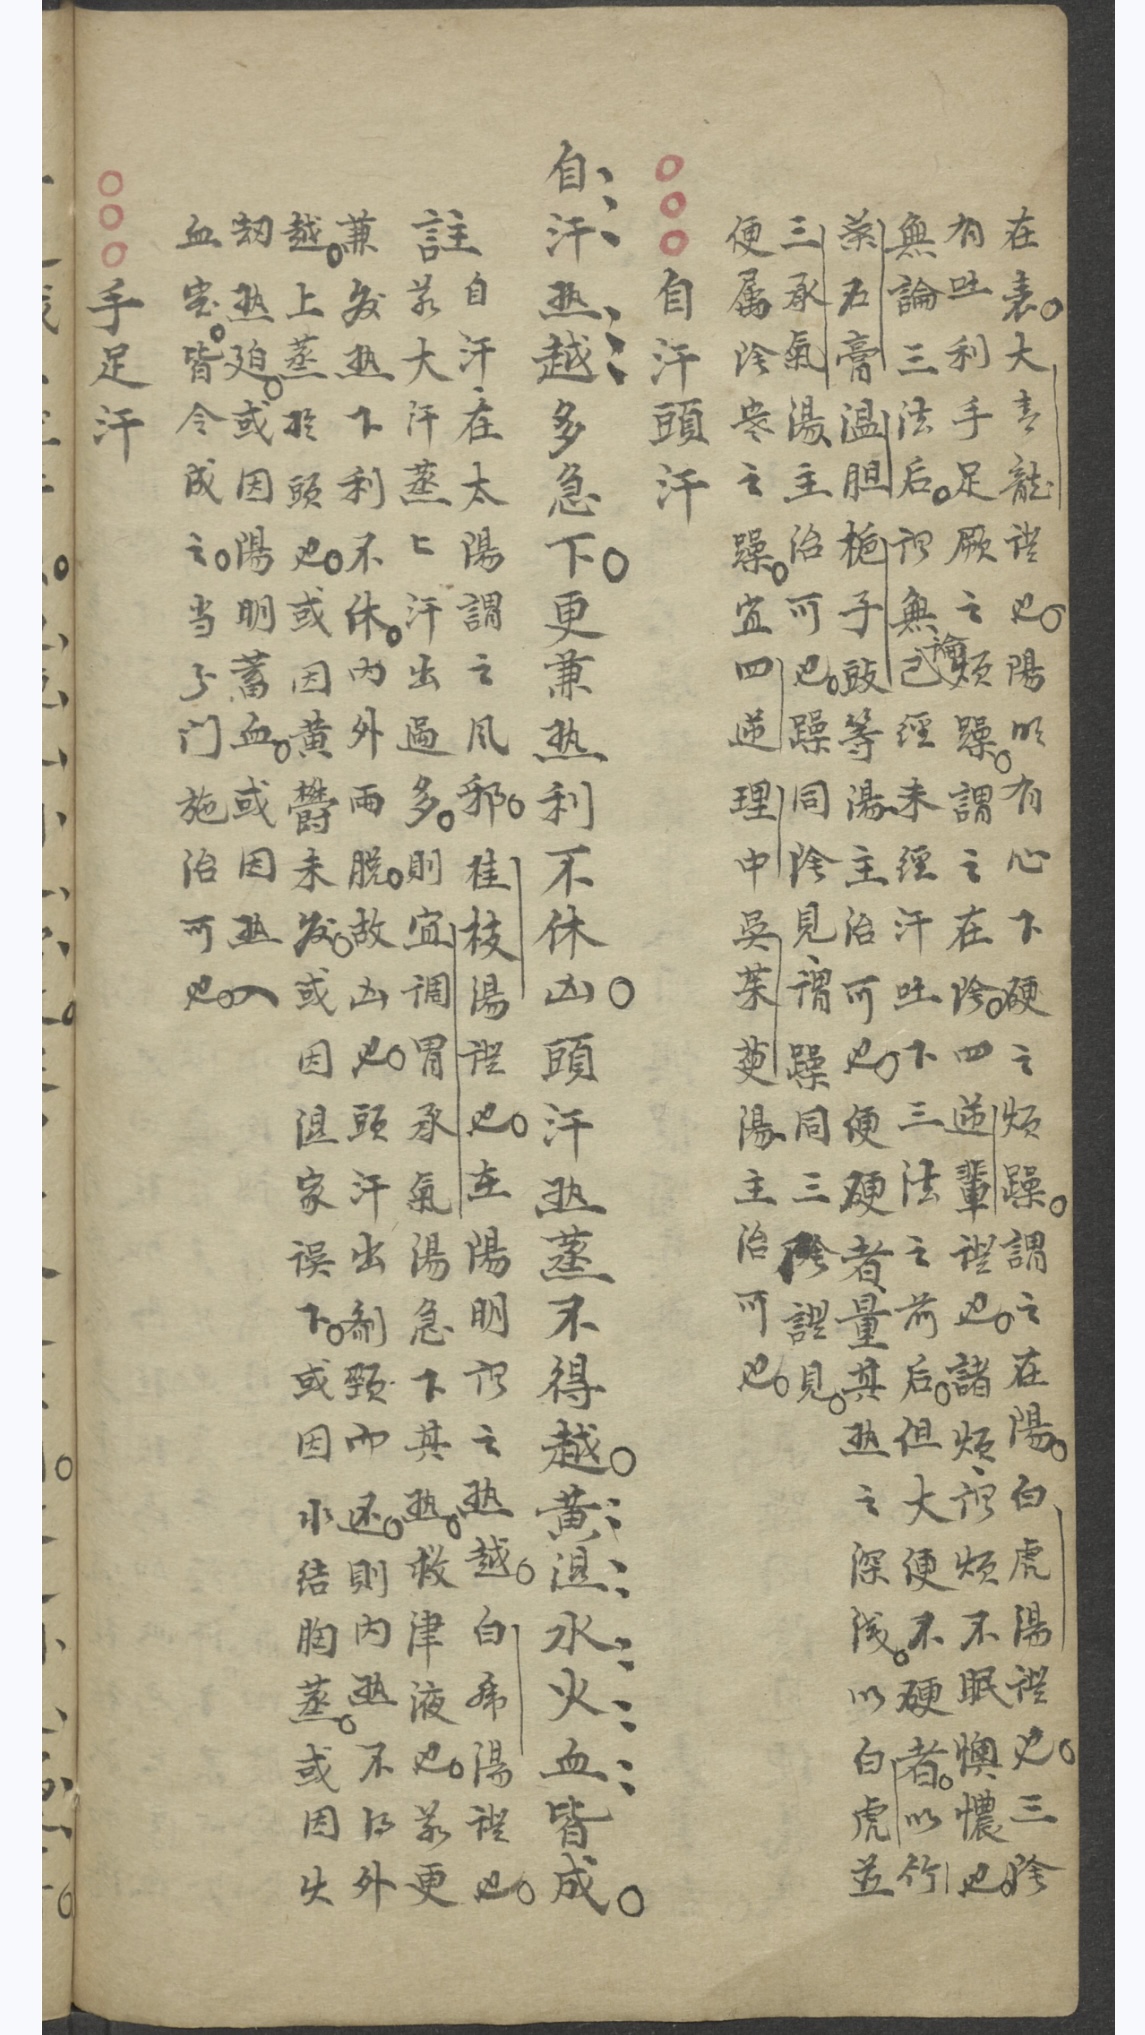 在表。大青龍證也。陽明有心下硬之煩躁。謂之在陽。白虎湯證也。三陰
有吐利手足厥之煩躁。謂之在陰。四逆輩證也。諸煩論謂煩不眠懊憹也。
無論三法后。謂無已經未經汗吐下三法之前后。但大便不硬者。以竹
葉石膏溫胆梔子豉等湯主治可也。便硬者量其热之深浅。以白虎並
三承氣湯主治可也。躁同陰見謂躁同三陰證見。
便属陰寒之躁。宜四逆理中吳茱萸湯主治可也。
○○○自汗頭汗
自汗热越多急下。更兼热利不休凶。頭汗热蒸不得越。黄湿水火血皆成。
註自汗在太陽謂之风邪。桂枝湯證也。在陽明謂之热越。白虎湯證也。
若大汗蒸〻汗出過多。則宜調胃承氣湯急下其热。救津液也。若更
兼发热下利不休。内外両脱。故凶也。頭汗出剂頸而还。則内热不得外
越。上蒸於頭也。或因黄欝未发。或因湿家误下。或因水结胸蒸。或因火
刼热迫。或因陽明蓄血。或因热入
血室。皆令成之。当分门施治可也。
○○○手足汗